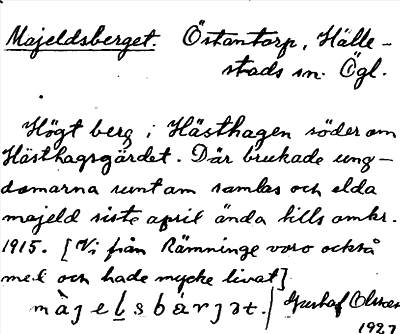 Majeldsberget. Östantorp, Hälle-
stads sn. Ögl.
Högt berg i Hästhagen söder om
Hästhagsgärdet. Där brukade ung-
domarna runt om samlas och elda
majeld siste april ända tills omkr.
1915. [Vi från Rämninge voro också
med och hade mycke livat]
màjelsbárjət. / Gustaf Olsson
1927